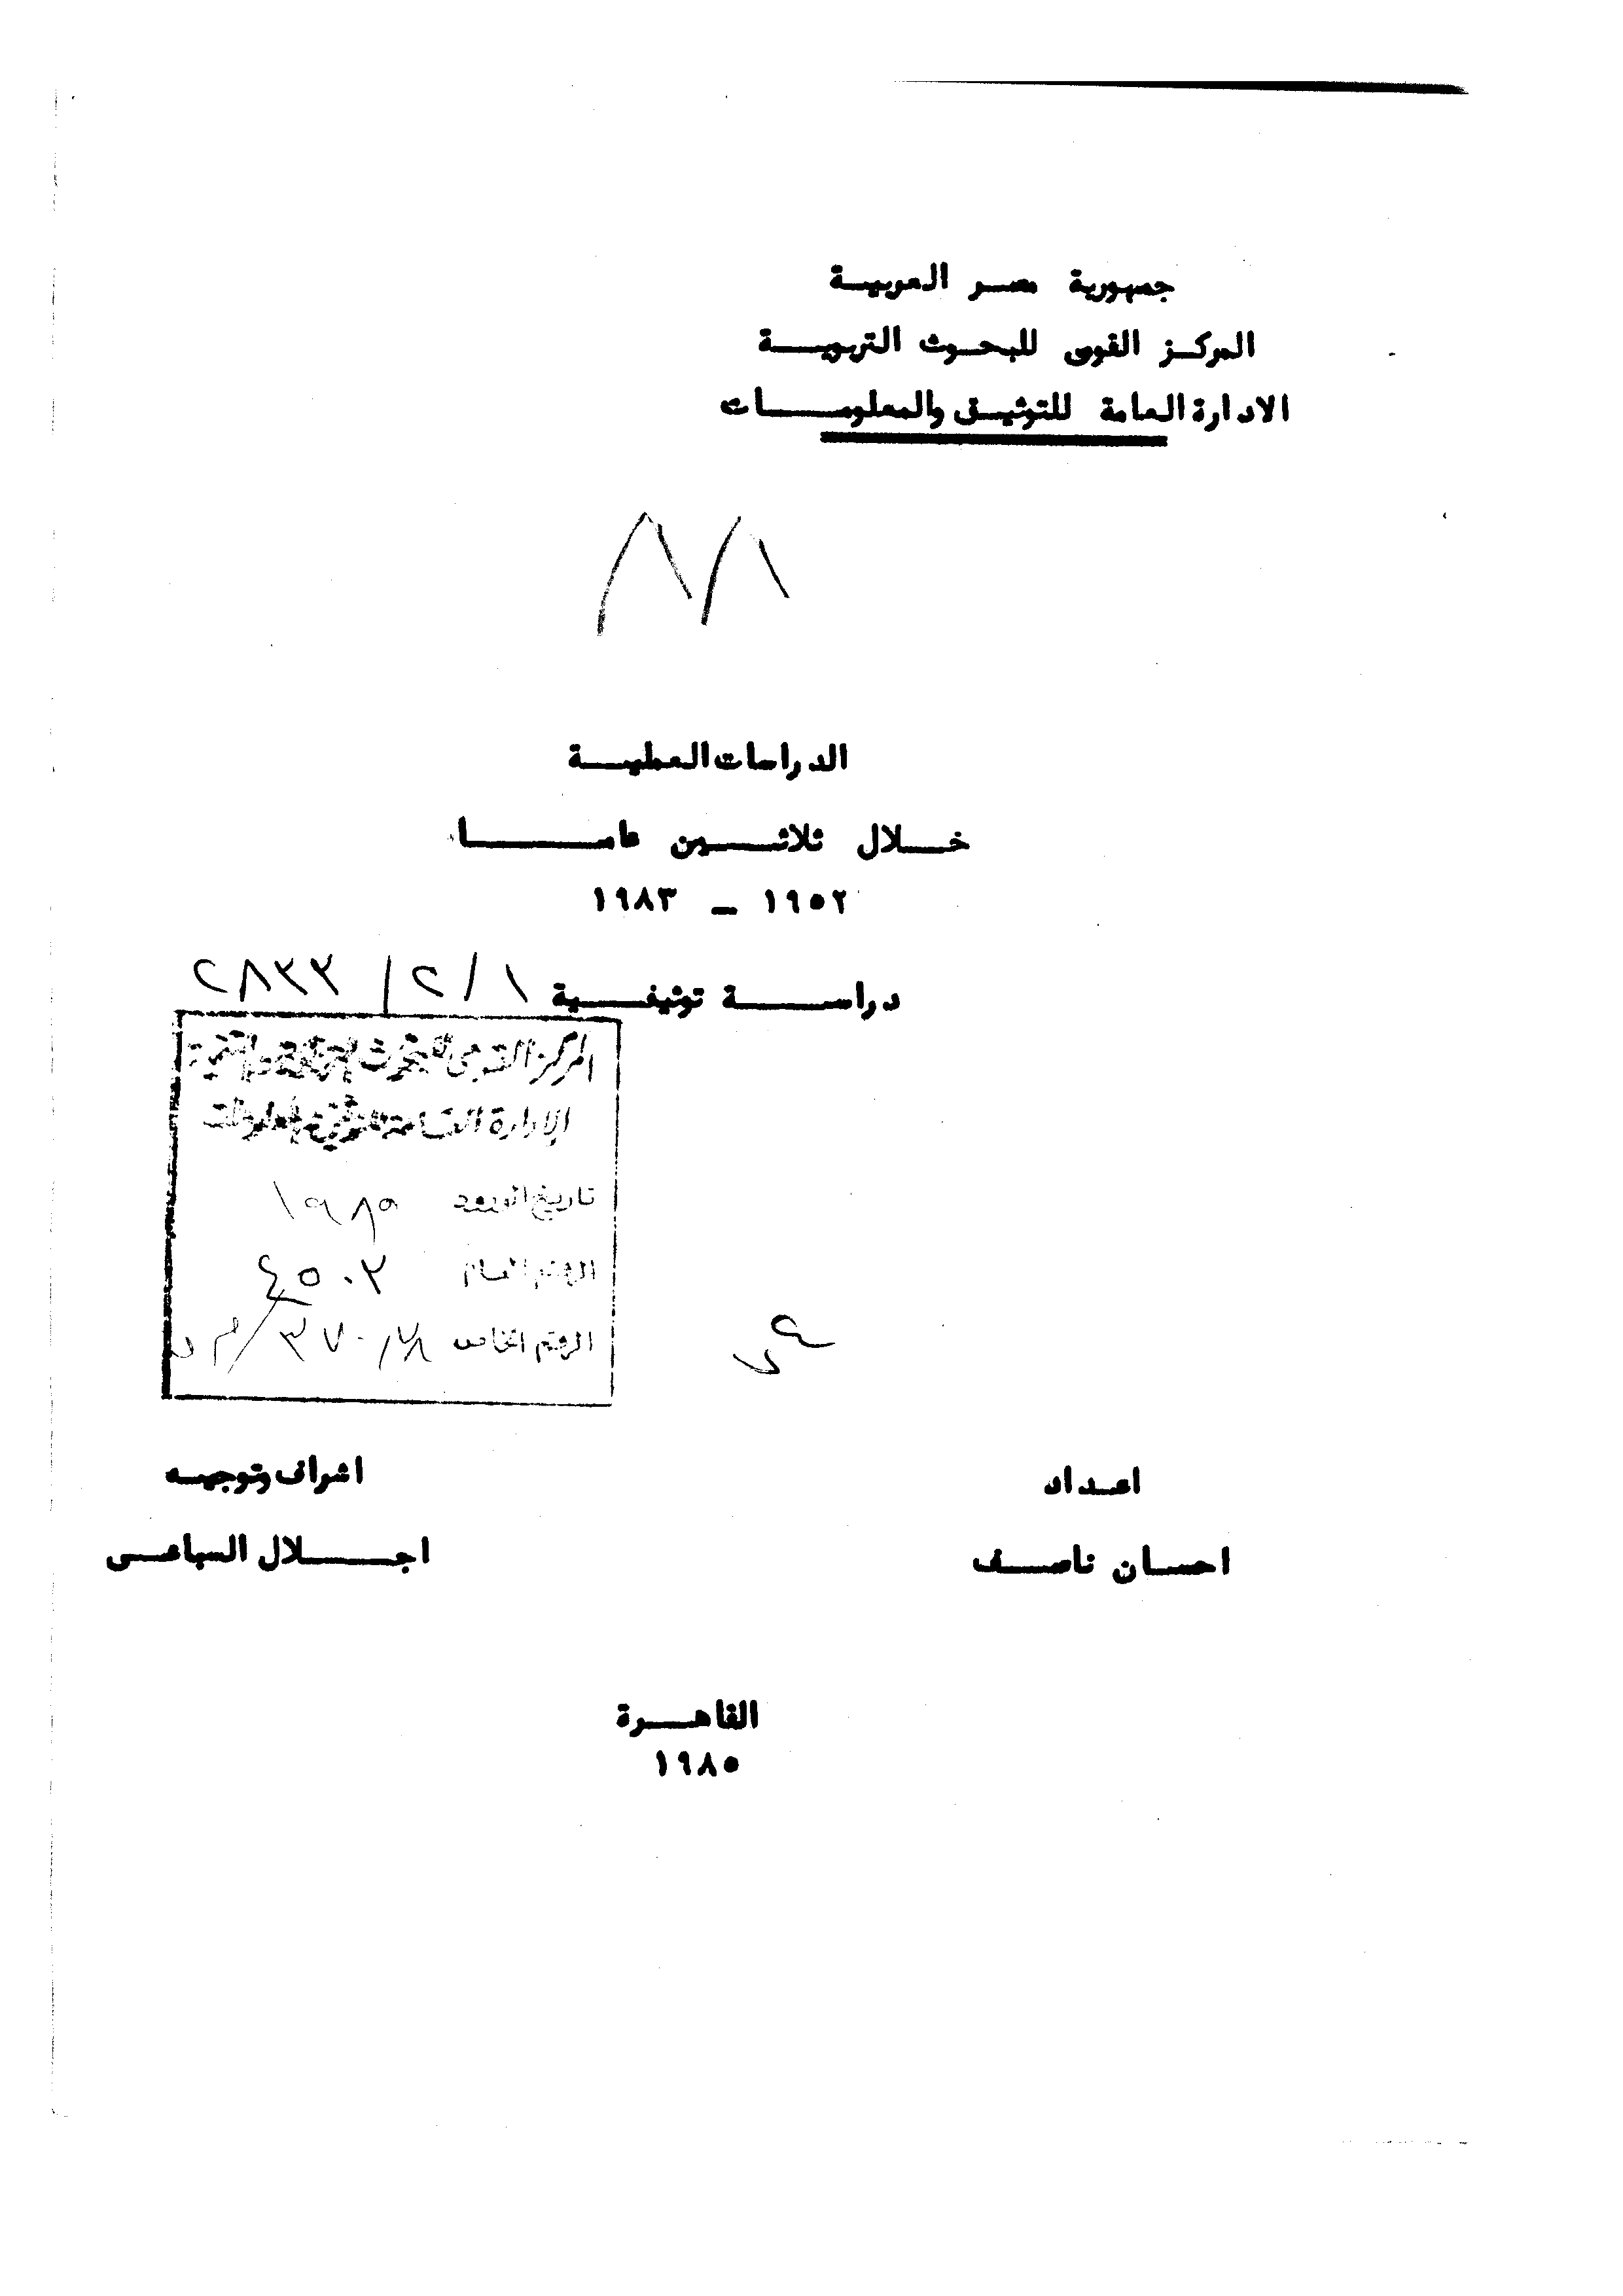 جمهورية مصر العربية
المركز القومى للبحوث التربوية
الادارة العامة للتوثيق والمعلومات
٨٨
الدراسات العملية
خلال ثلاثين عاما
١٩٥٢ - ١٩٨٣
دراسة توثيقية
المركز القومى للبحوث التربوية والتنمية
الإدارة العامة للتوثيق والمعلومات
تاريخ الورود ١٩٨٩
الرقم العام
الرقم الخاص
اعداد
اشراف وتوجيه
احسان ناصف
اجلال السباعى
القاهرة
١٩٨٥